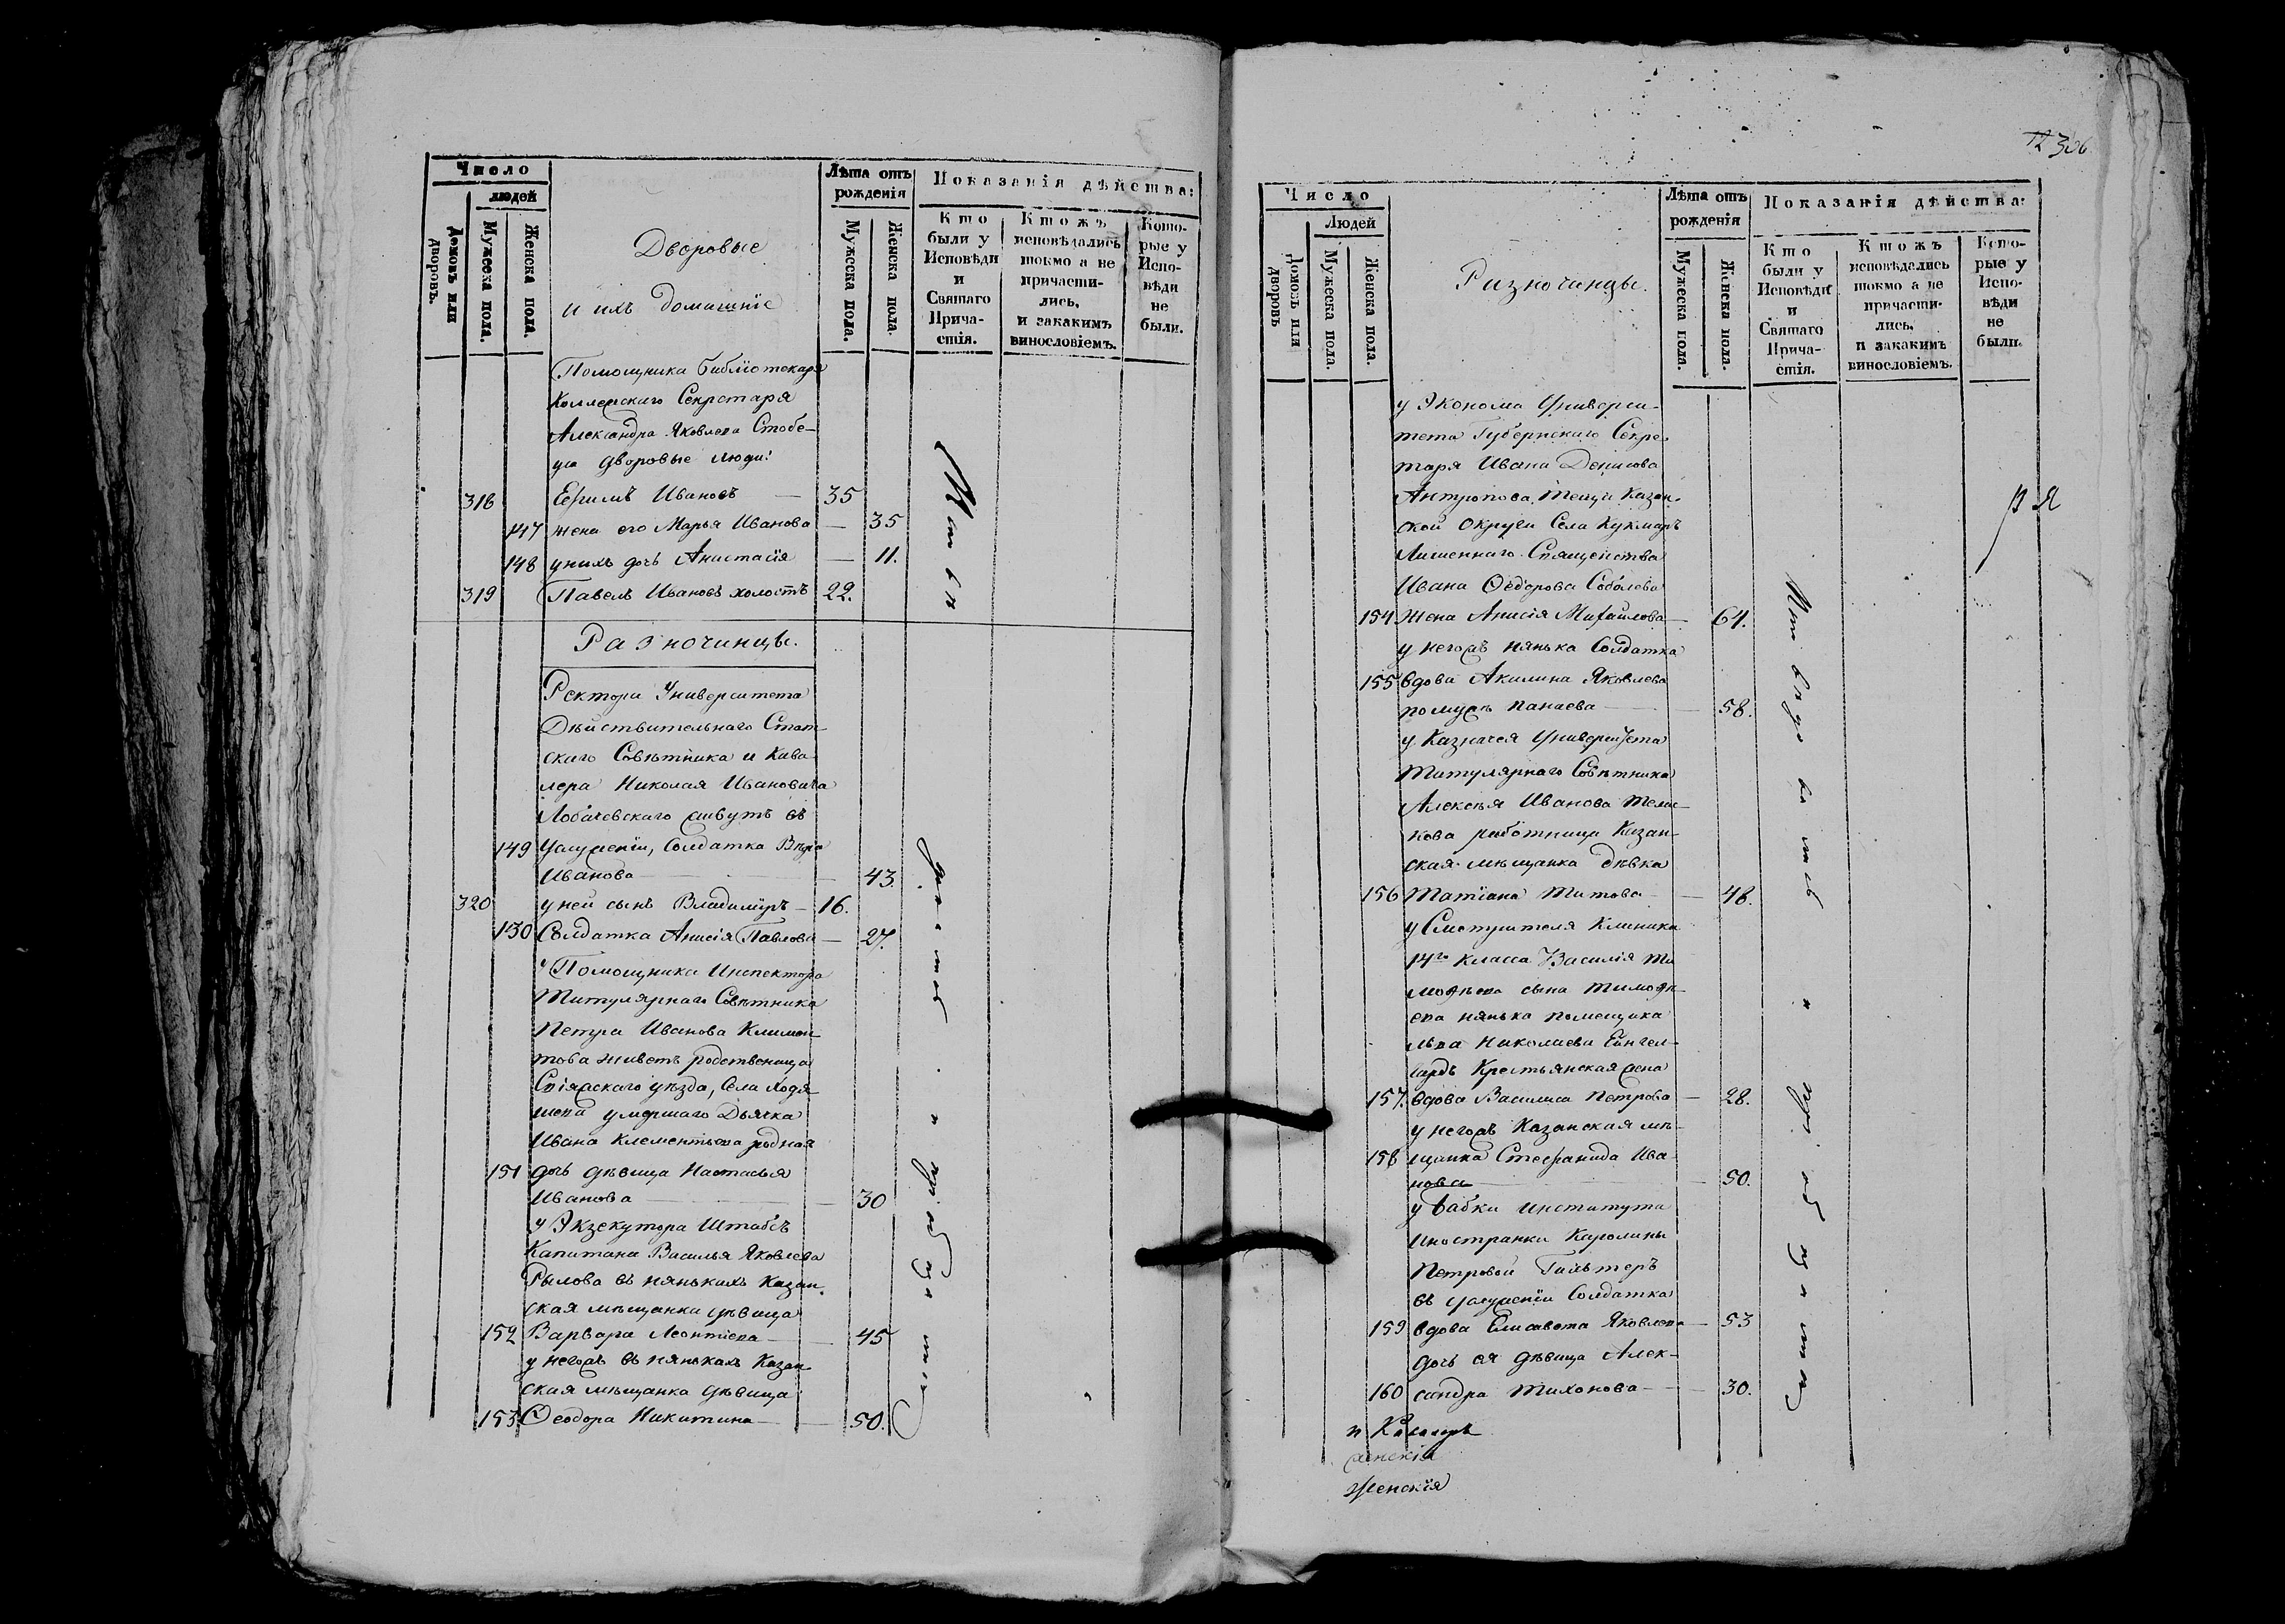 Число
людей
Домовъ или дворовъ.
Мужеска пола.
Женска пола.
Дворовые
и ихъ домашніе
Лѣта отъ рожденія
Мужеска пола.
Женска пола.
Показанія дѣйства:
Кто были у Исповѣди и Святаго Причастія.
Ктожъ исповѣдались токмо а не причастились, и закакимъ винословіемъ.
Которые у Исповѣди не были.
Помощника библіотекаря
Коллежскаго Секретаря
Александра Яковлева Стобе-
уса дворовые люди:
316 Ефимъ Ивановъ — 35
147 жена его Марья Иванова — 35
148 у нихъ дочь Анастасія — 11.
319 Павелъ Ивановъ холостъ 22.
Разночинцы.
Ректора Университета
Дѣйствительнаго Стат-
скаго Совѣтника и Кава-
лера Николая Ивановича
Лобачевскаго живутъ въ
149 услуженіи, Солдатка Вѣра
Иванова — 43.
320 у ней сынъ Владимиръ — 16.
130 Солдатка Анисія Павлова — 27.
у Помощника Инспектора
Титулярнаго Совѣтника
Петра Иванова Климен
това живетъ родственица
Свіяжскаго уѣзда, Села Ходя
шева умершаго Дьячка
Ивана Клементьева родная
151 дочь дѣвица Настасья
Иванова — 30
у Экзекутора Штабсъ
Капитана Василья Яковлева
Рылова въ нянькахъ Казан-
ская мѣщанка дѣвица
152 Варвара Леонтіева — 45
у негожъ въ нянькахъ Казан
ская мѣщанка дѣвица
153 Ѳеодора Никитина — 50.
12 306
Число
Людей
Домовъ или дворовъ
Мужеска пола.
Женска пола.
Разночинцы.
Лѣта отъ рожденія
Мужеска пола.
Женска пола.
Показанія дѣйства:
Кто были у Исповѣди и Святаго Причастія.
Ктожъ исповѣдались токмо а не причастились, и закакимъ винословіемъ.
Которые у Исповѣди не были.
у Эконома Универси-
тета Губернскаго Секре-
таря Ивана Денисова
Антропова теща Казан-
ской округи Села Кукморъ
Лишеннаго Священства
Ивана Ѳедорова Соболева
154 жена Анисія Михайлова — 64.
у негожъ нянька Солдатка
155 вдова Акилина Яковлева
по мужѣ Панаева — 58.
у Казначея Университета
Титулярнаго Совѣтника
Алексѣя Иванова
кова работница Казан-
ская мѣщанка дѣвка
156 Татіана Титова — 48.
у Смотрителя Клиники
14го класса Василія Ти
моѳѣева сына Тимоѳѣ-
ева нянька помещика
Льва Николаева Енгел-
гардъ Крестьянская жена
157. вдова Василиса Петрова — 28.
у негожъ Казанская мѣ-
158 щанка Стефанида Ива-
нова — 50.
у бабки института
Иностранки Каролины
Петровой
въ услуженіи Солдатка
159 вдова Елисавета Яковлева — 53
дочь ея дѣвица Алек-
160 сандра Тихонова — 30.
и Кавалеръ
Женскія